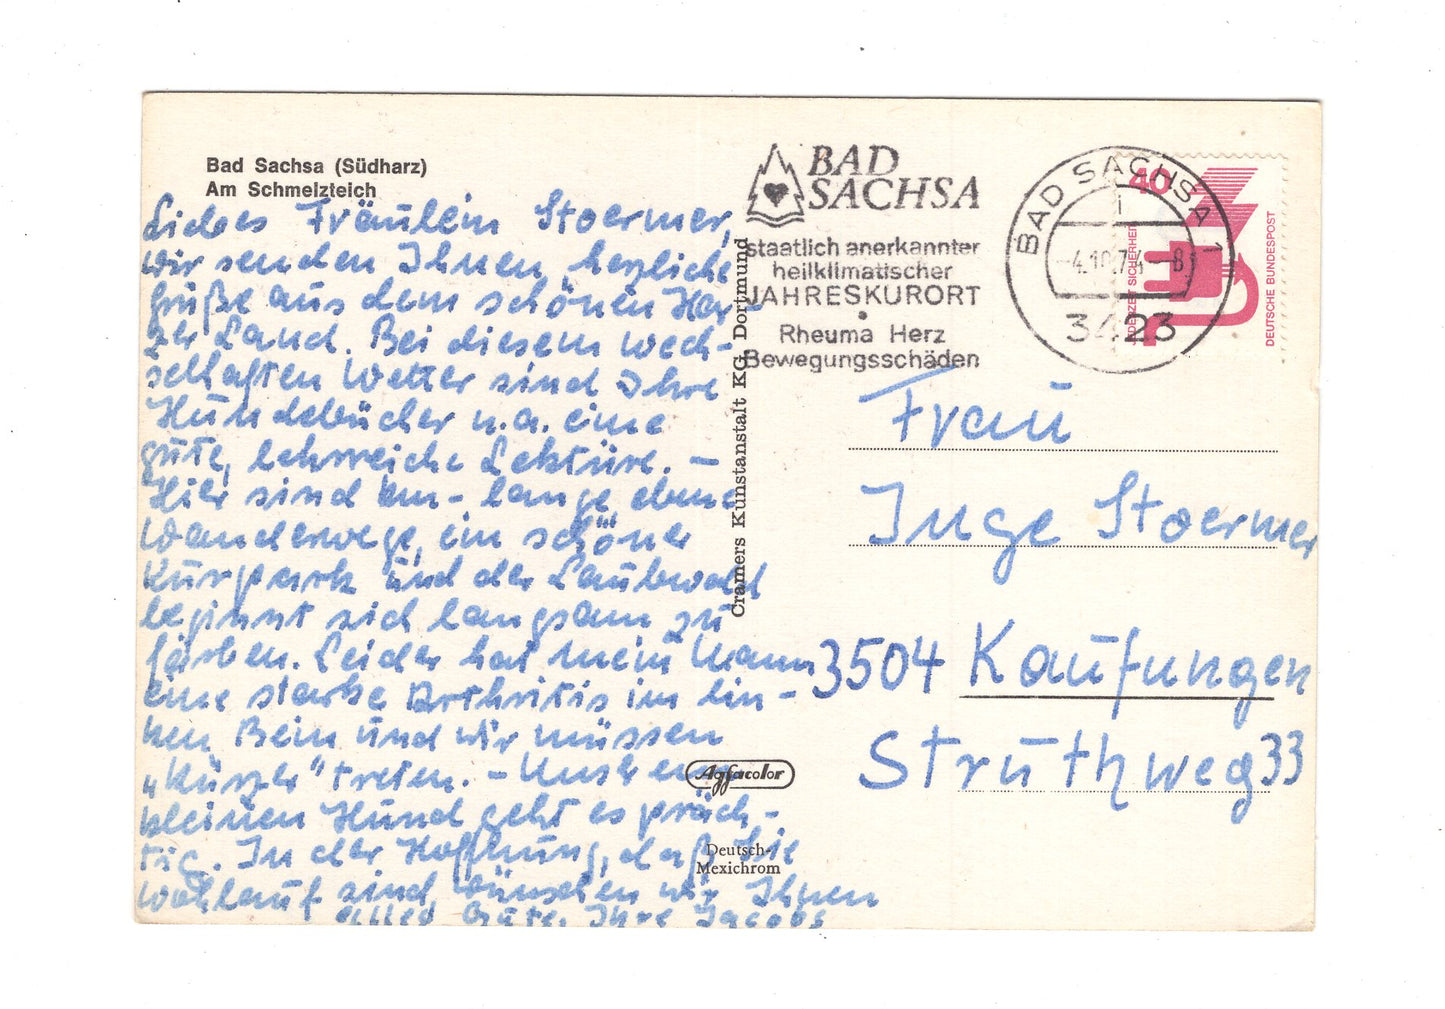 Bad Sachsa (Südharz)
Am Schmelzteich
Liebes Fräulein Stoermer,
wir senden Ihnen herzliche
Grüße aus dem schönen Har-
zer Land. Bei diesem wech-
selhaften Wetter sind Ihre
Hundebücher u.a. eine
gute, lehrreiche Lektüre. –
Hier sind km-lange ebene
Wanderwege, ein schöner
Kurpark und der Laubwald
beginnt sich langsam zu
färben. Leider hat mein Mann
eine starke Arthritis im lin-
ken Bein und wir müssen
„kürzer" treten. – Unserem
kleinen Hund geht es präch-
tig. In der Hoffnung, daß Sie
wohlauf sind, wünschen wir Ihnen
alles Gute, Ihre Jacobs
Cramers Kunstanstalt KG, Dortmund
Agfacolor
Deutsch-
Mexichrom
BAD
SACHSA
staatlich anerkannter
heilklimatischer
JAHRESKURORT
Rheuma Herz
Bewegungsschäden
BAD SACHSA 1
-4.10.74-8
3423
40
JEDERZEIT SICHERHEIT
DEUTSCHE BUNDESPOST
Frau
Inge Stoermer
3504 Kaufungen
Struthweg 33